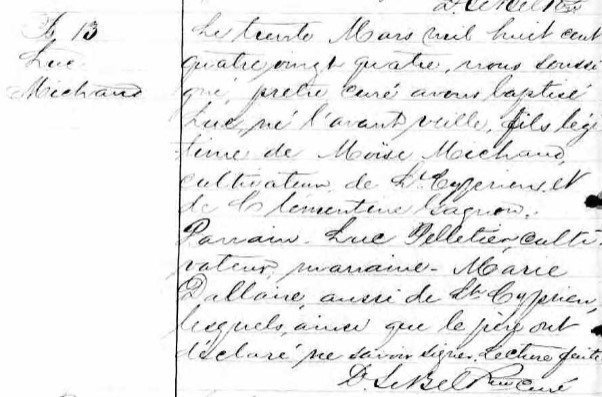 B 13
Luc
Michaud
Le trente Mars mil huit cent
quatre vingt quatre, nous soussi
gné, prêtre curé avons baptisé
Luc, né l'avant veille, fils légi
time de Moïse Michaud,
cultivateur de St Cyprien, et
de Clémentine Gagnon.
Parrain - Luc Pelletier, culti
vateur, marraine - Marie
Dallaire, aussi de St Cyprien,
lesquels, ainsi que le père ont
déclaré ne savoir signer. Lecture faite
D. LeBel Ptre curé